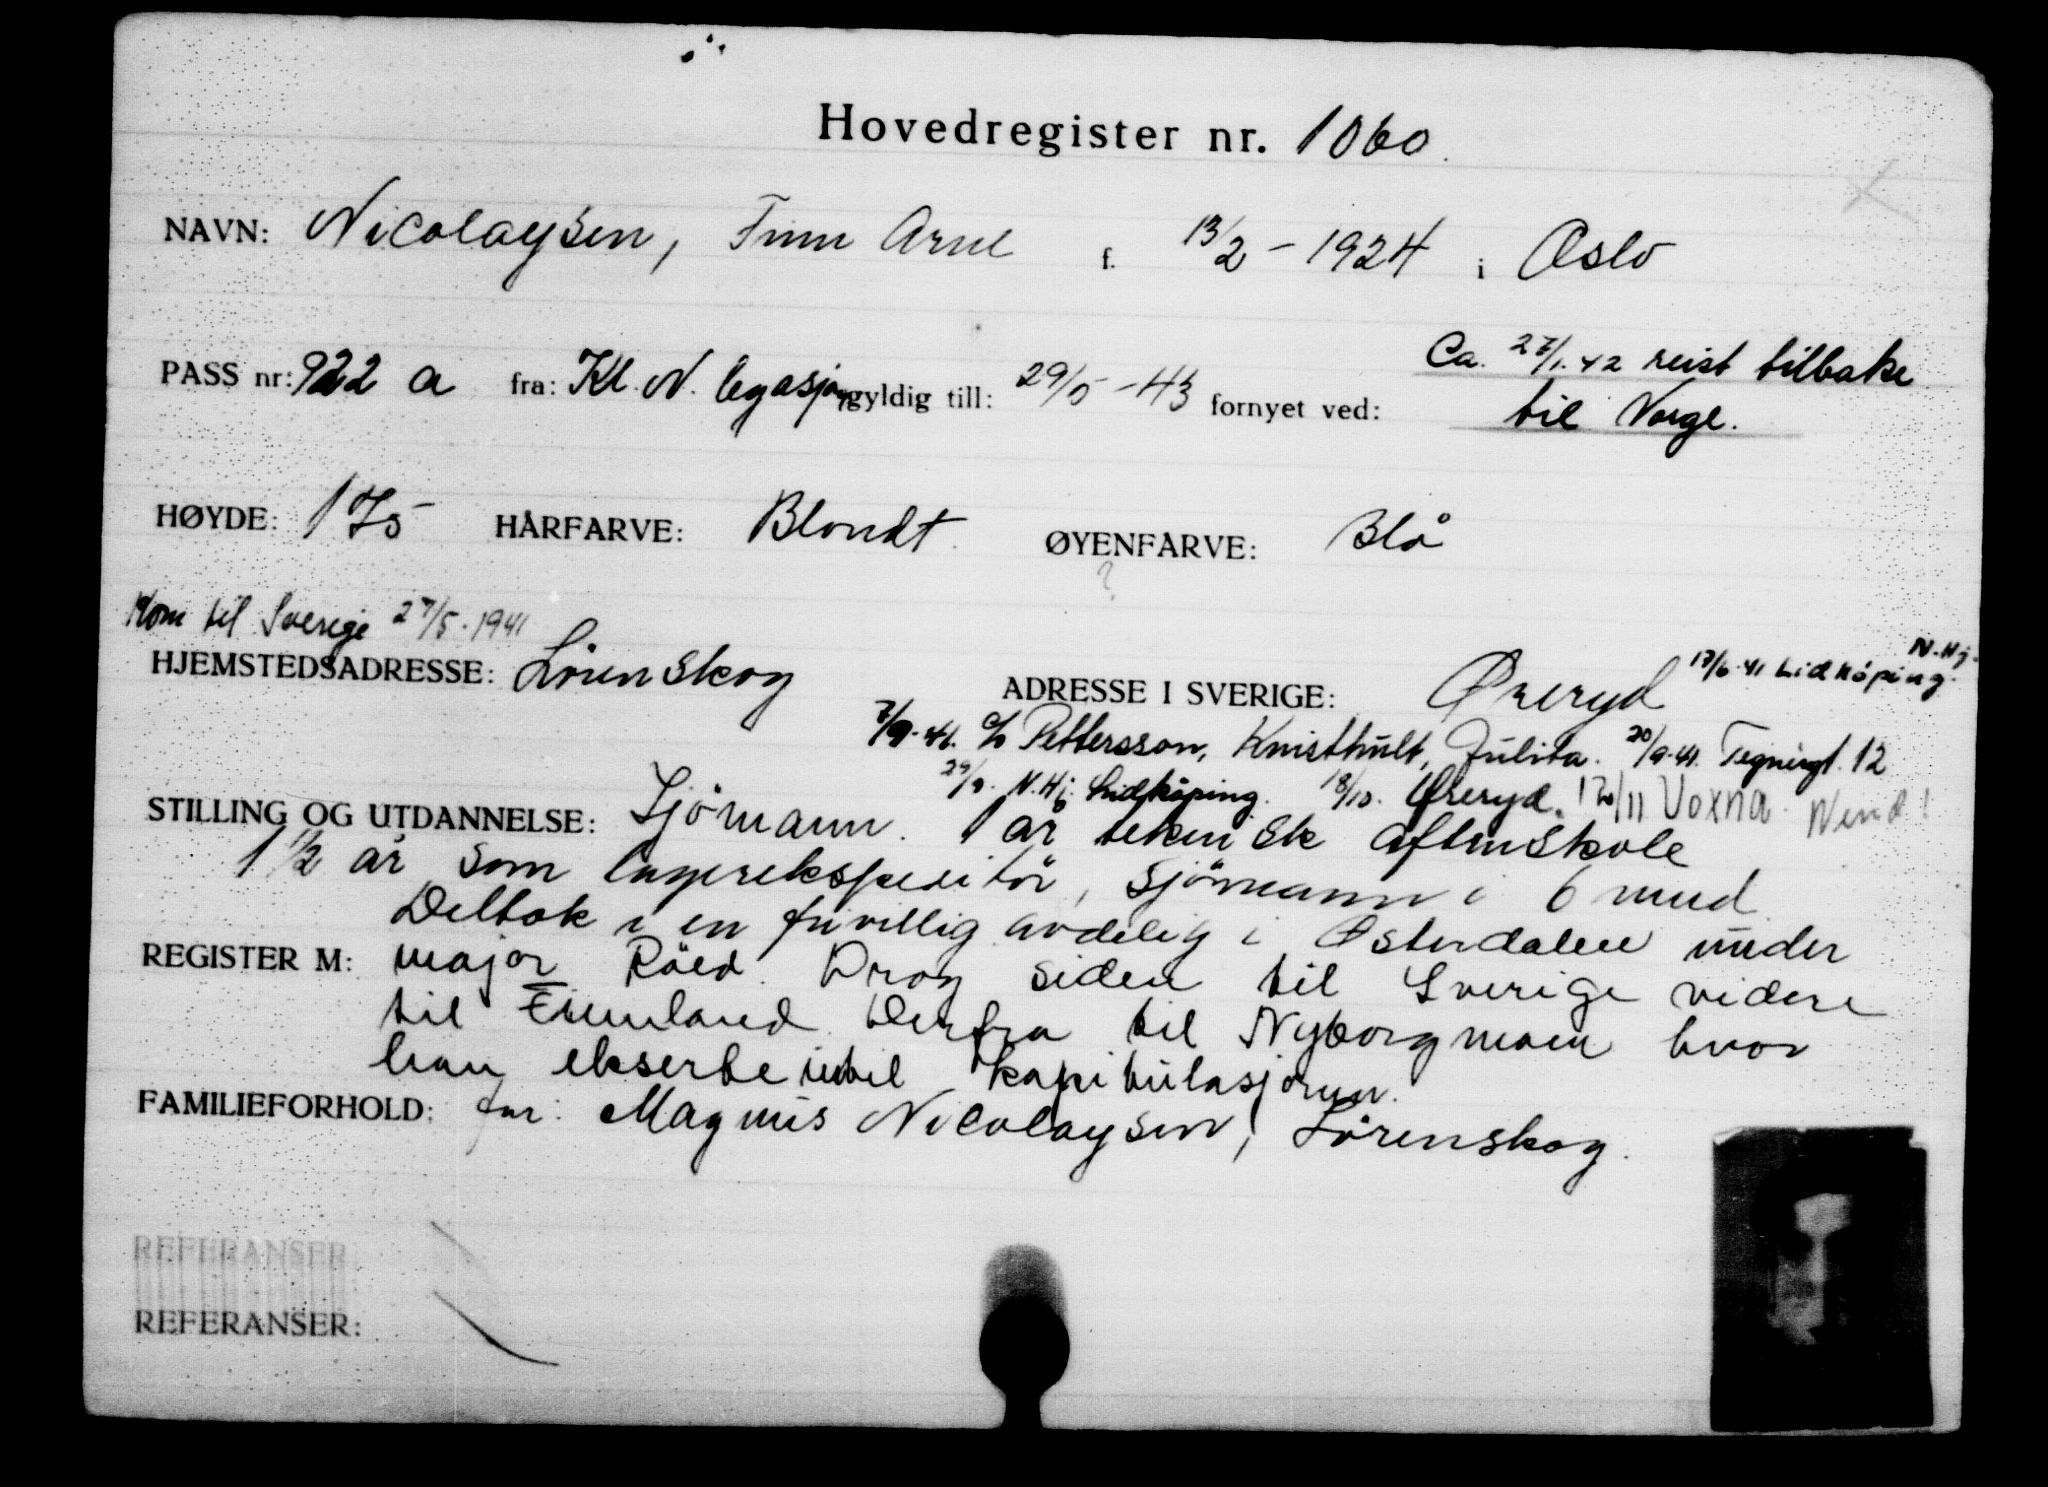 Hovedregister nr. 1060.
NAVN: Nicolaysen, Finn Arne f. 13/2 - 1924 i Oslo
Ca. 27/1.42 reist tilbake
PASS nr: 922 a fra: Kl. N. legasjon gyldig till: 29/5 - 43 fornyet ved: til Norge.
HØYDE: 175 HÅRFARVE: Blondt. ØYENFARVE: Blå
?
Kom til Sverige 27/5 - 1941
HJEMSTEDSADRESSE: Lörenskog ADRESSE I SVERIGE: Øreryd 17/6.41 Lidköping N.Hj.
7/9.41. c/o Pettersson, Knisthult, Julita. 20/9.41. Tegnérgt. 12
29/9. N.Hj. Lidköping. 18/10. Øreryd. 120/11 Voxna. Wend!
STILLING OG UTDANNELSE: Sjömann. 1 år teknisk aftenskole
1 1/2 år som lagerekspeditör, Sjömann i 6 mnd.
Deltok i en frivillig avdelig i Østerdalen under
REGISTER M: major Röed. Drog siden til Sverige videre
til Finnland. Derfra til Nyborgmoen hvor
han ekserte inntil kapitulasjonen.
FAMILIEFORHOLD: far: Magnus Nicolaysen, Lörenskog.
REFERANSER:
REFERANSER: